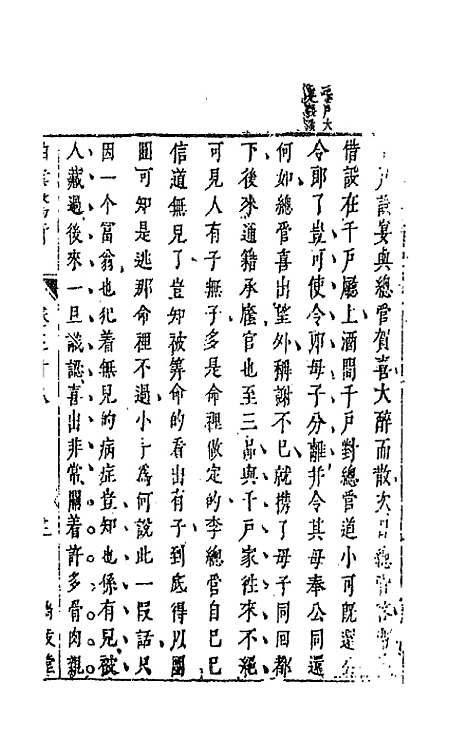 戶設宴與總管賀喜大醉而散次日總管
借設在千戶廳上酒間千戶對總管道小可旣還
令郎了豈可使令郎母子分離并令其母奉公同還
何如總管喜出望外稱謝不已就携了母子同回都
下後來通籍承廕官也至三品與千戶家徃來不絕
可見人有子無子多是命裡做定的李總管自已已
信道無兒了豈知被筭命的看出有子到底得以團
圓可知是逃那命裡不過小子爲何說此一段話只
因一个富翁也犯着無兒的病症豈知也係有兒被
人藏過後來一旦識認喜出非常關着許多骨肉親
卷三十八
尚友堂